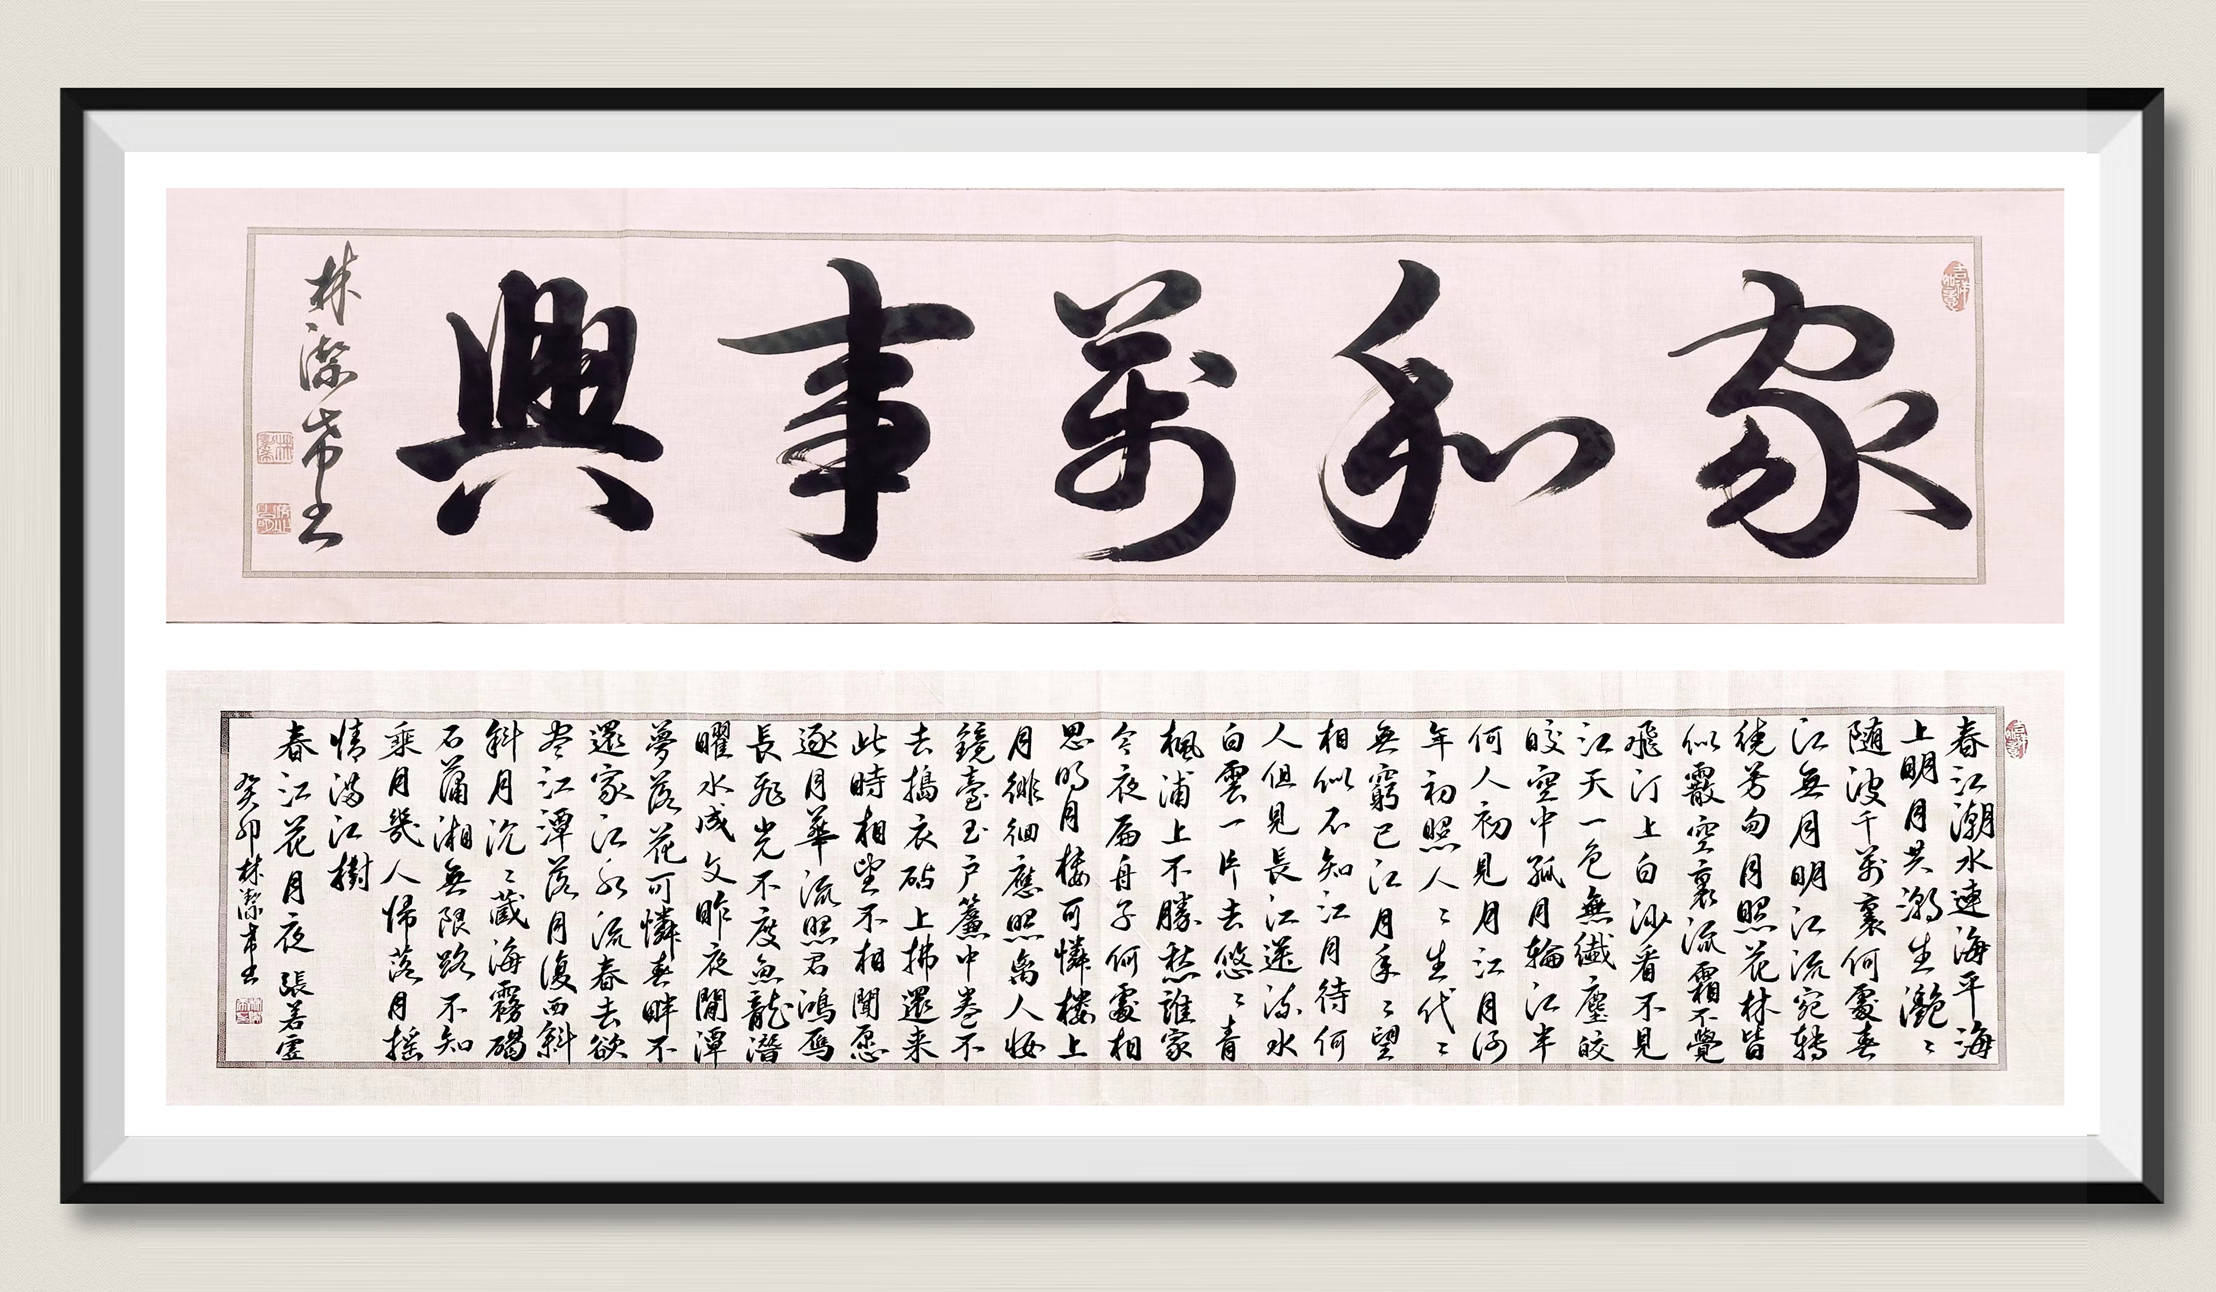 家和萬事興
林潔书
春江潮水連海平海
上明月共潮生灧〻
随波千萬裏何處春
江無月明江流宛轉
繞芳甸月照花林皆
似霰空裏流霜不覺
飛汀上白沙看不見
江天一色無纖塵皎
皎空中孤月輪江半
何人初見月江月何
年初照人〻生代〻
無窮已江月年〻望
相似不知江月待何
人但見長江送流水
白雲一片去悠〻青
楓浦上不勝愁誰家
今夜扁舟子何處相
思明月樓可憐樓上
月徘徊應照离人妝
鏡臺玉户簾中卷不
去搗衣砧上拂還来
此時相望不相聞愿
逐月華流照君鴻雁
長飛光不度魚龍潛
曜水成文昨夜閒潭
夢落花可憐春畔不
還家江水流春去欲
尽江潭落月復西斜
斜月沉〻藏海霧碣
石瀟湘無限路不知
乘月幾人帰落月摇
情满江樹
春江花月夜 張若虚
癸卯林潔书